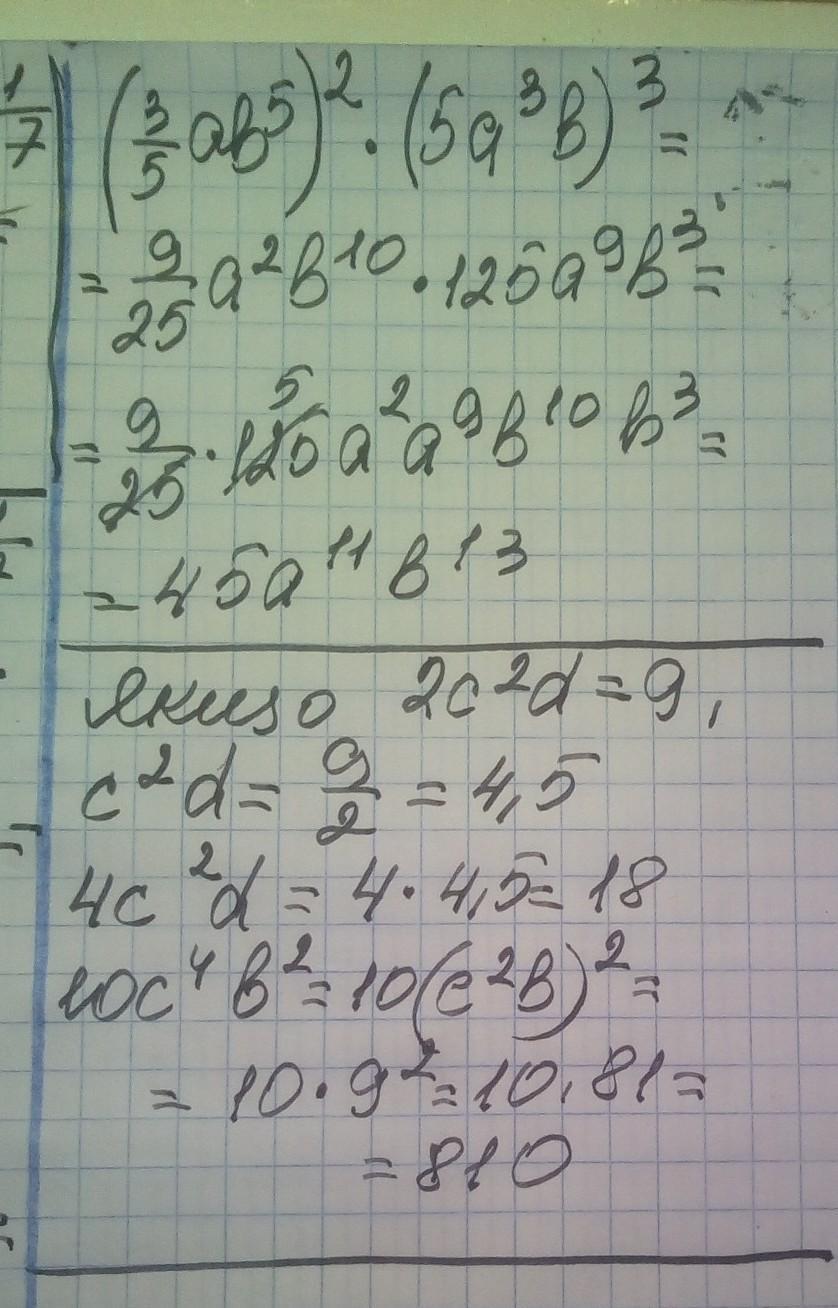 (3/5 ab⁵)² · (5a³b)³ =
= 9/25 a²b¹⁰ · 125a⁹b³ =
= 9/25 · 125 5 a²a⁹b¹⁰b³ =
= 45a¹¹b¹³
Якщо 2c²d = 9,
c²d = 9/2 = 4,5
4c²d = 4 · 4,5 = 18
10c⁴b² = 10(c²b)² =
= 10 · 9² = 10 · 81 =
= 810